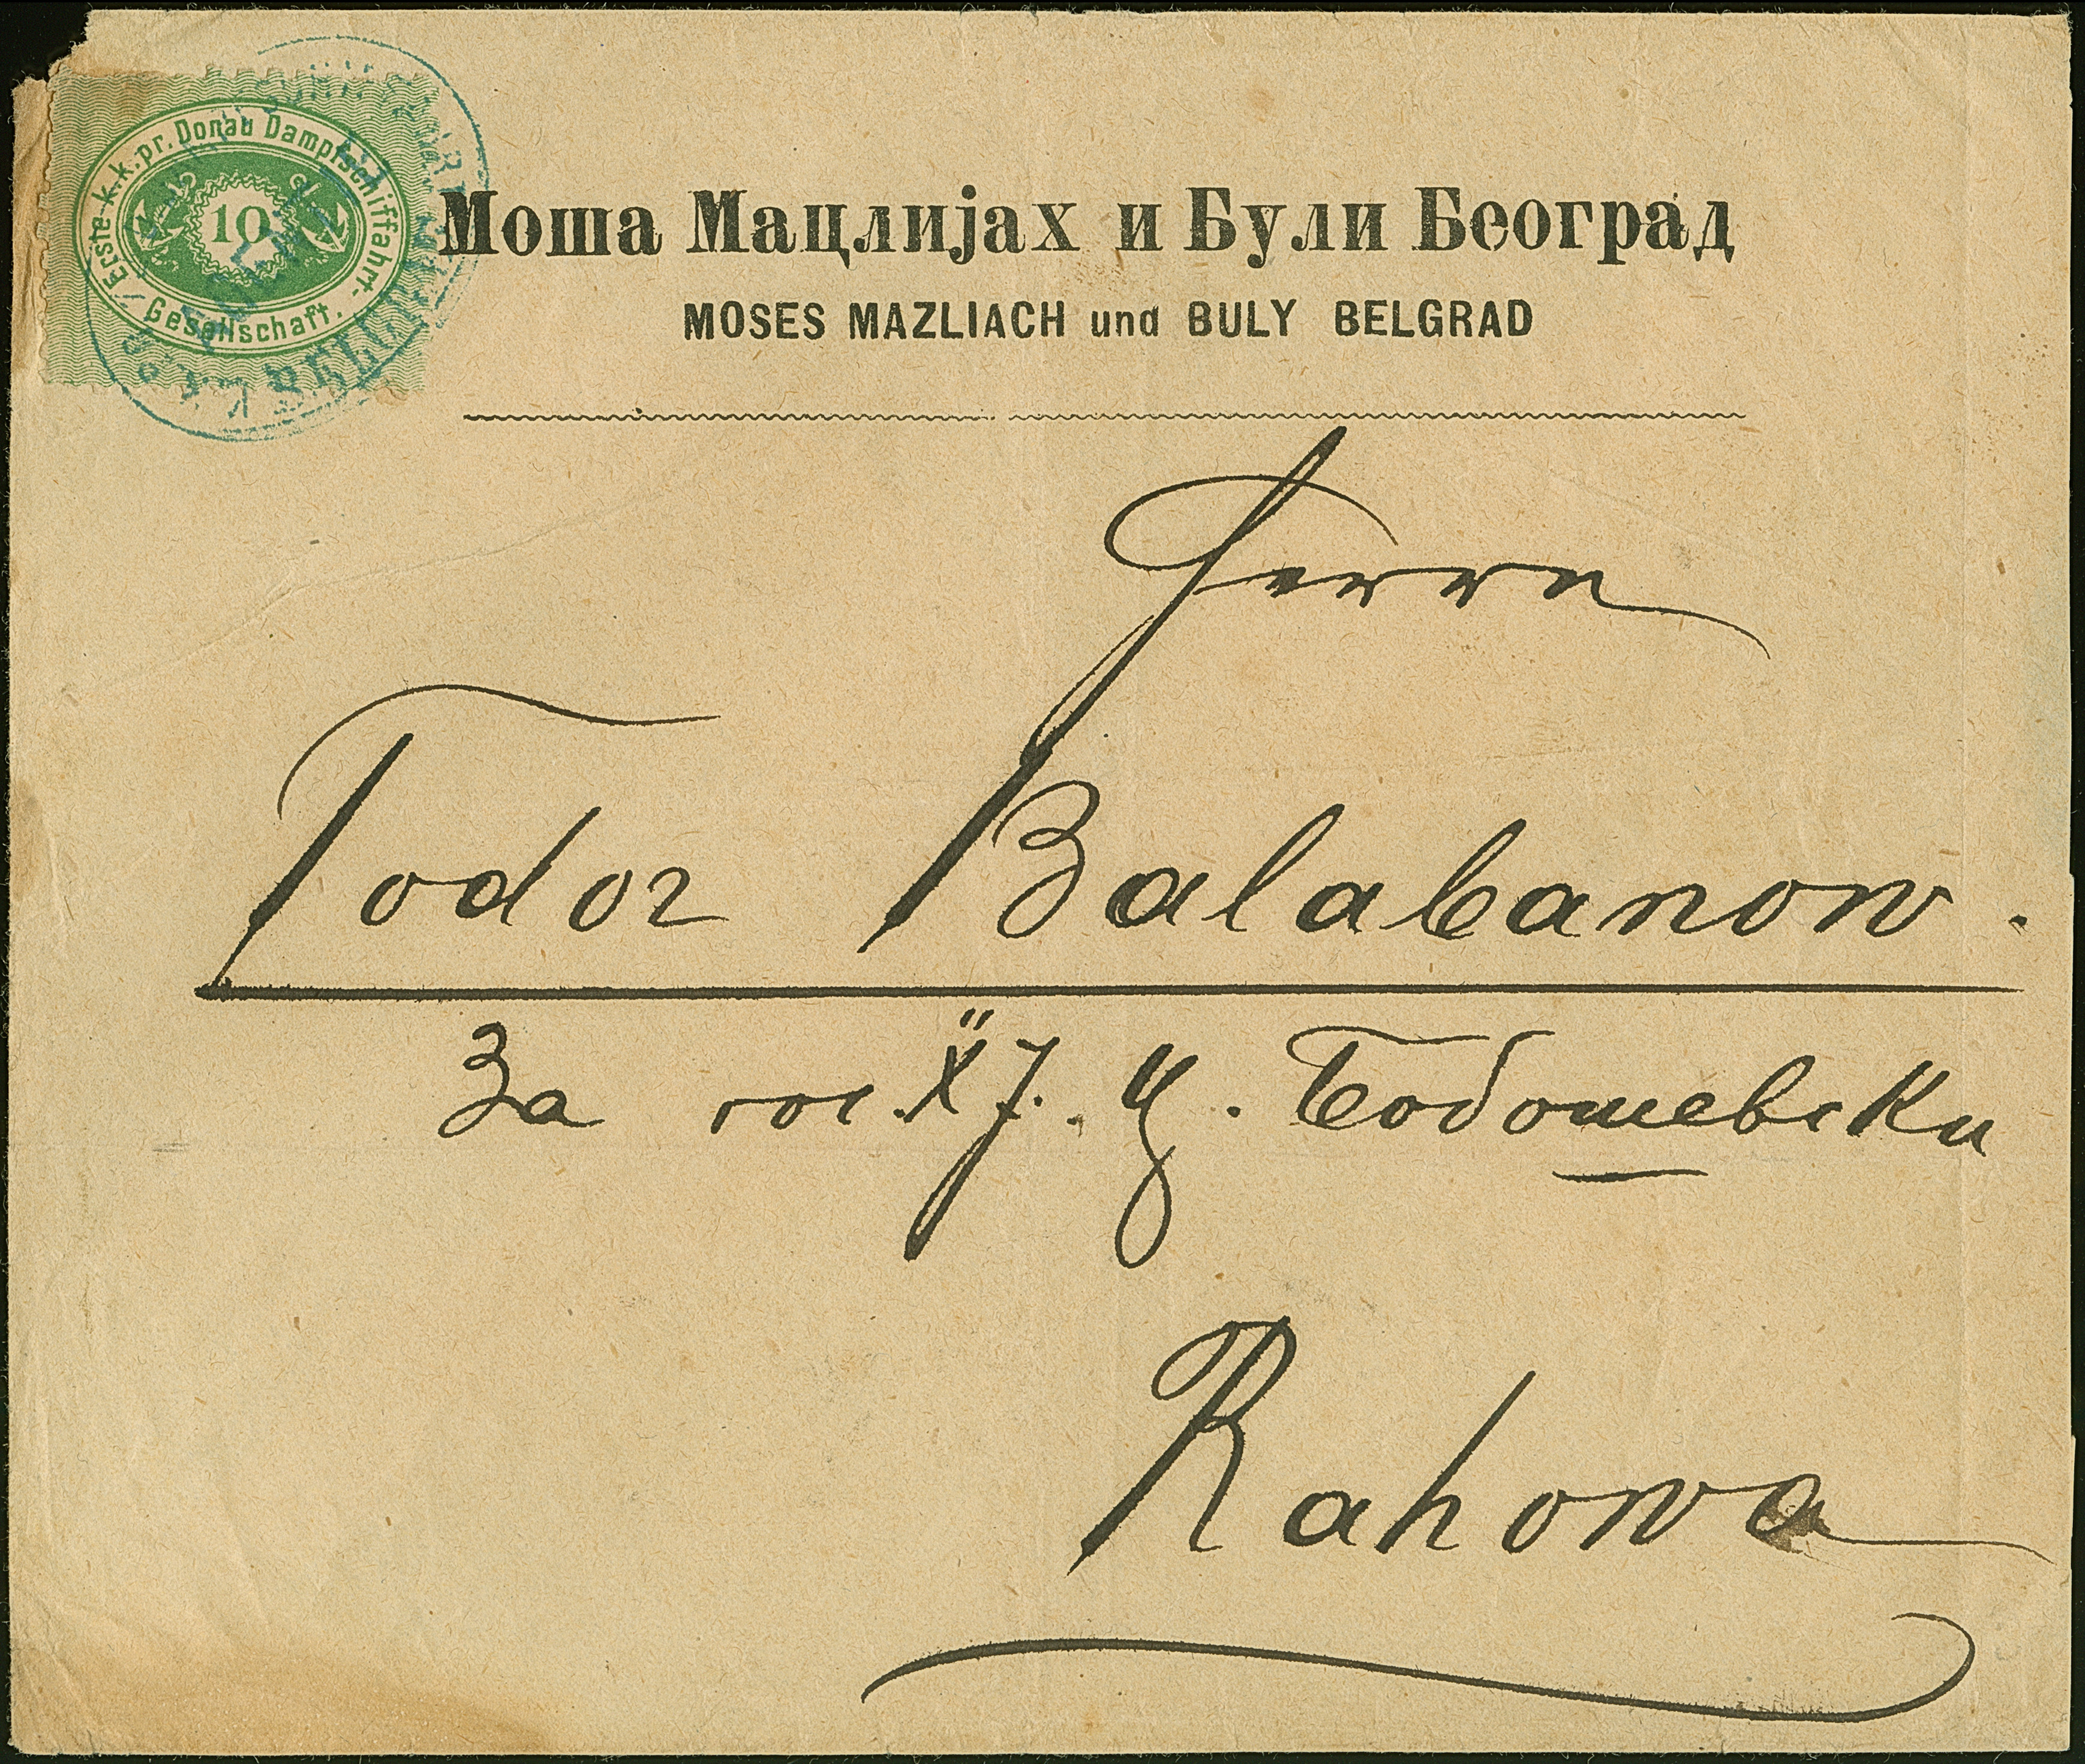 Erste k.k. pr. Donau Dampfschiffahrt-
Gesellschaft.
10
BELGRAD
Моша Мацлијах и Були Београд
MOSES MAZLIACH und BULY BELGRAD
Herrn
Todor Balabanow.
За гос. Ц. Бобошевски
Rahowa